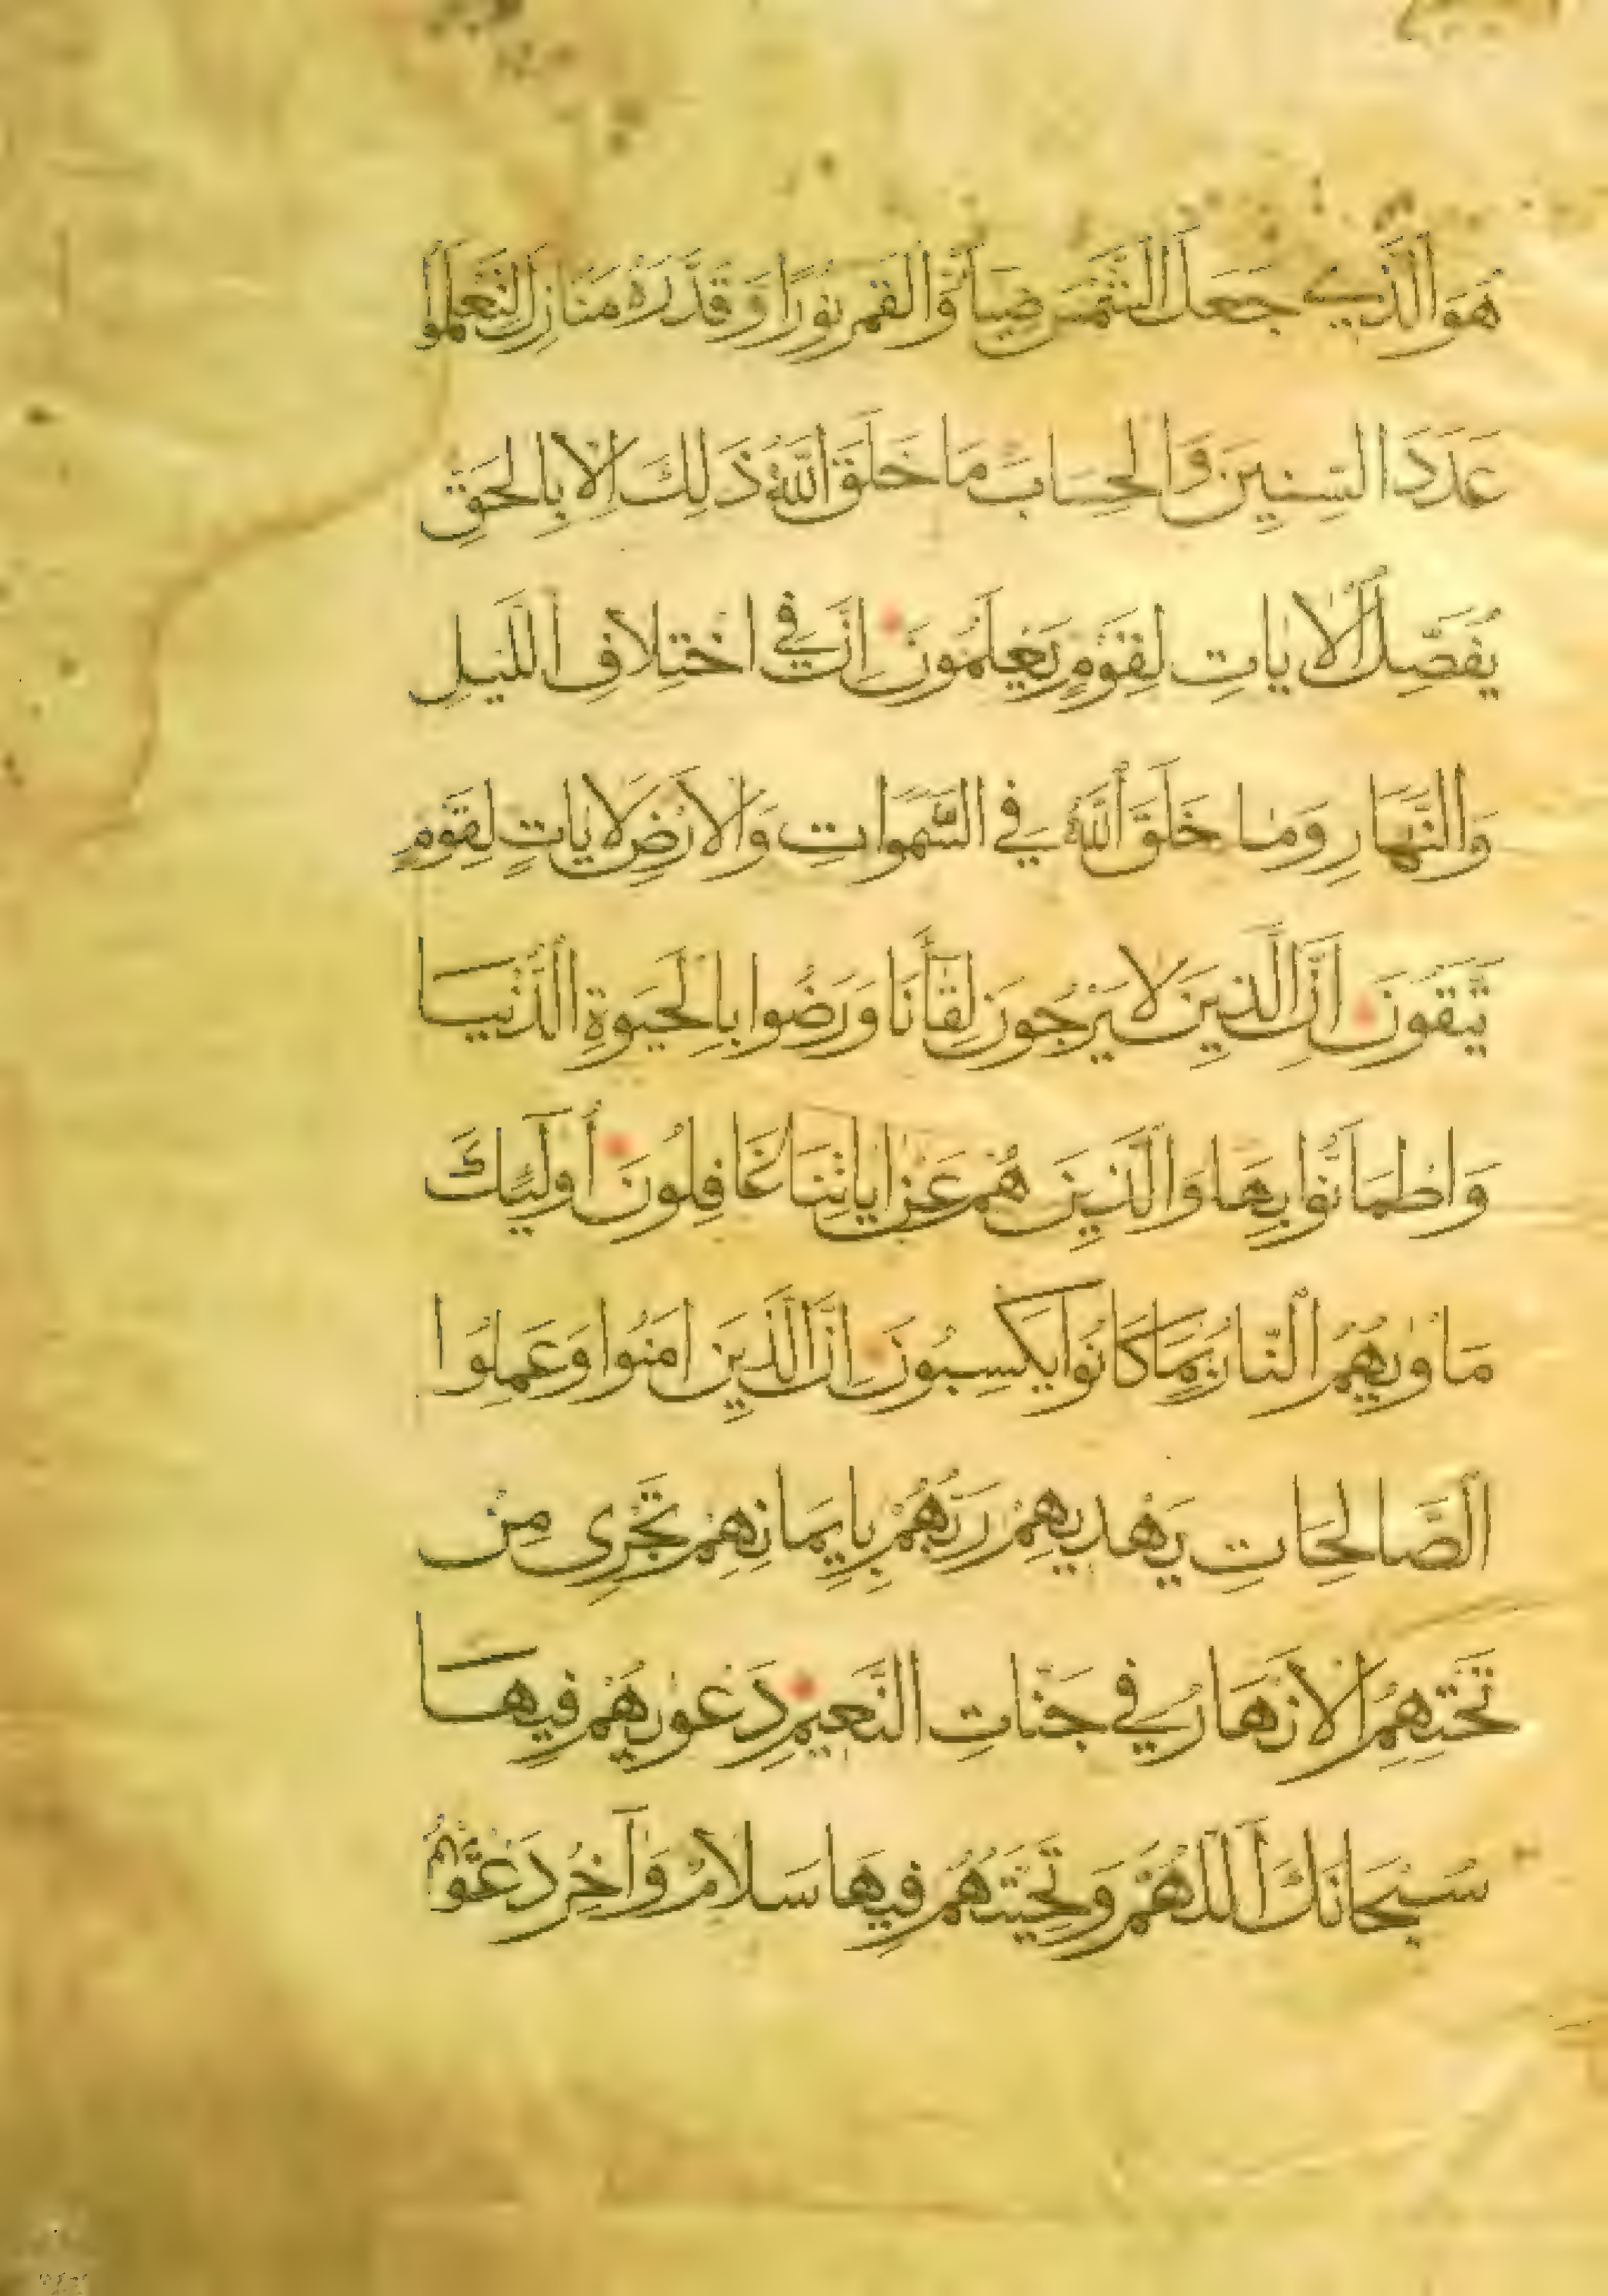 هُوَ الَّذِي جَعَلَ الشَّمْسَ ضِيَاءً وَالْقَمَرَ نُورًا وَقَدَّرَهُ مَنَازِلَ لِتَعْلَمُوا
عَدَدَ السِّنِينَ وَالْحِسَابَ مَا خَلَقَ اللَّهُ ذَلِكَ إِلَّا بِالْحَقِّ
يُفَصِّلُ الْآيَاتِ لِقَوْمٍ يَعْلَمُونَ إِنَّ فِي اخْتِلَافِ اللَّيْلِ
وَالنَّهَارِ وَمَا خَلَقَ اللَّهُ فِي السَّمَوَاتِ وَالْأَرْضِ لَآيَاتٍ لِقَوْمٍ
يَتَّقُونَ إِنَّ الَّذِينَ لَا يَرْجُونَ لِقَاءَنَا وَرَضُوا بِالْحَيَوةِ الدُّنْيَا
وَاطْمَأَنُّوا بِهَا وَالَّذِينَ هُمْ عَنْ آيَاتِنَا غَافِلُونَ أُولَئِكَ
مَأْوٰيهُمُ النَّارُ بِمَا كَانُوا يَكْسِبُونَ إِنَّ الَّذِينَ آمَنُوا وَعَمِلُوا
الصَّالِحَاتِ يَهْدِيهِمْ رَبُّهُمْ بِإِيمَانِهِمْ تَجْرِي مِنْ
تَحْتِهِمُ الْأَنْهَارُ فِي جَنَّاتِ النَّعِيمِ دَعْوٰيهُمْ فِيهَا
سُبْحَانَكَ اللَّهُمَّ وَتَحِيَّتُهُمْ فِيهَا سَلَامٌ وَآخِرُ دَعْوٰهُمْ